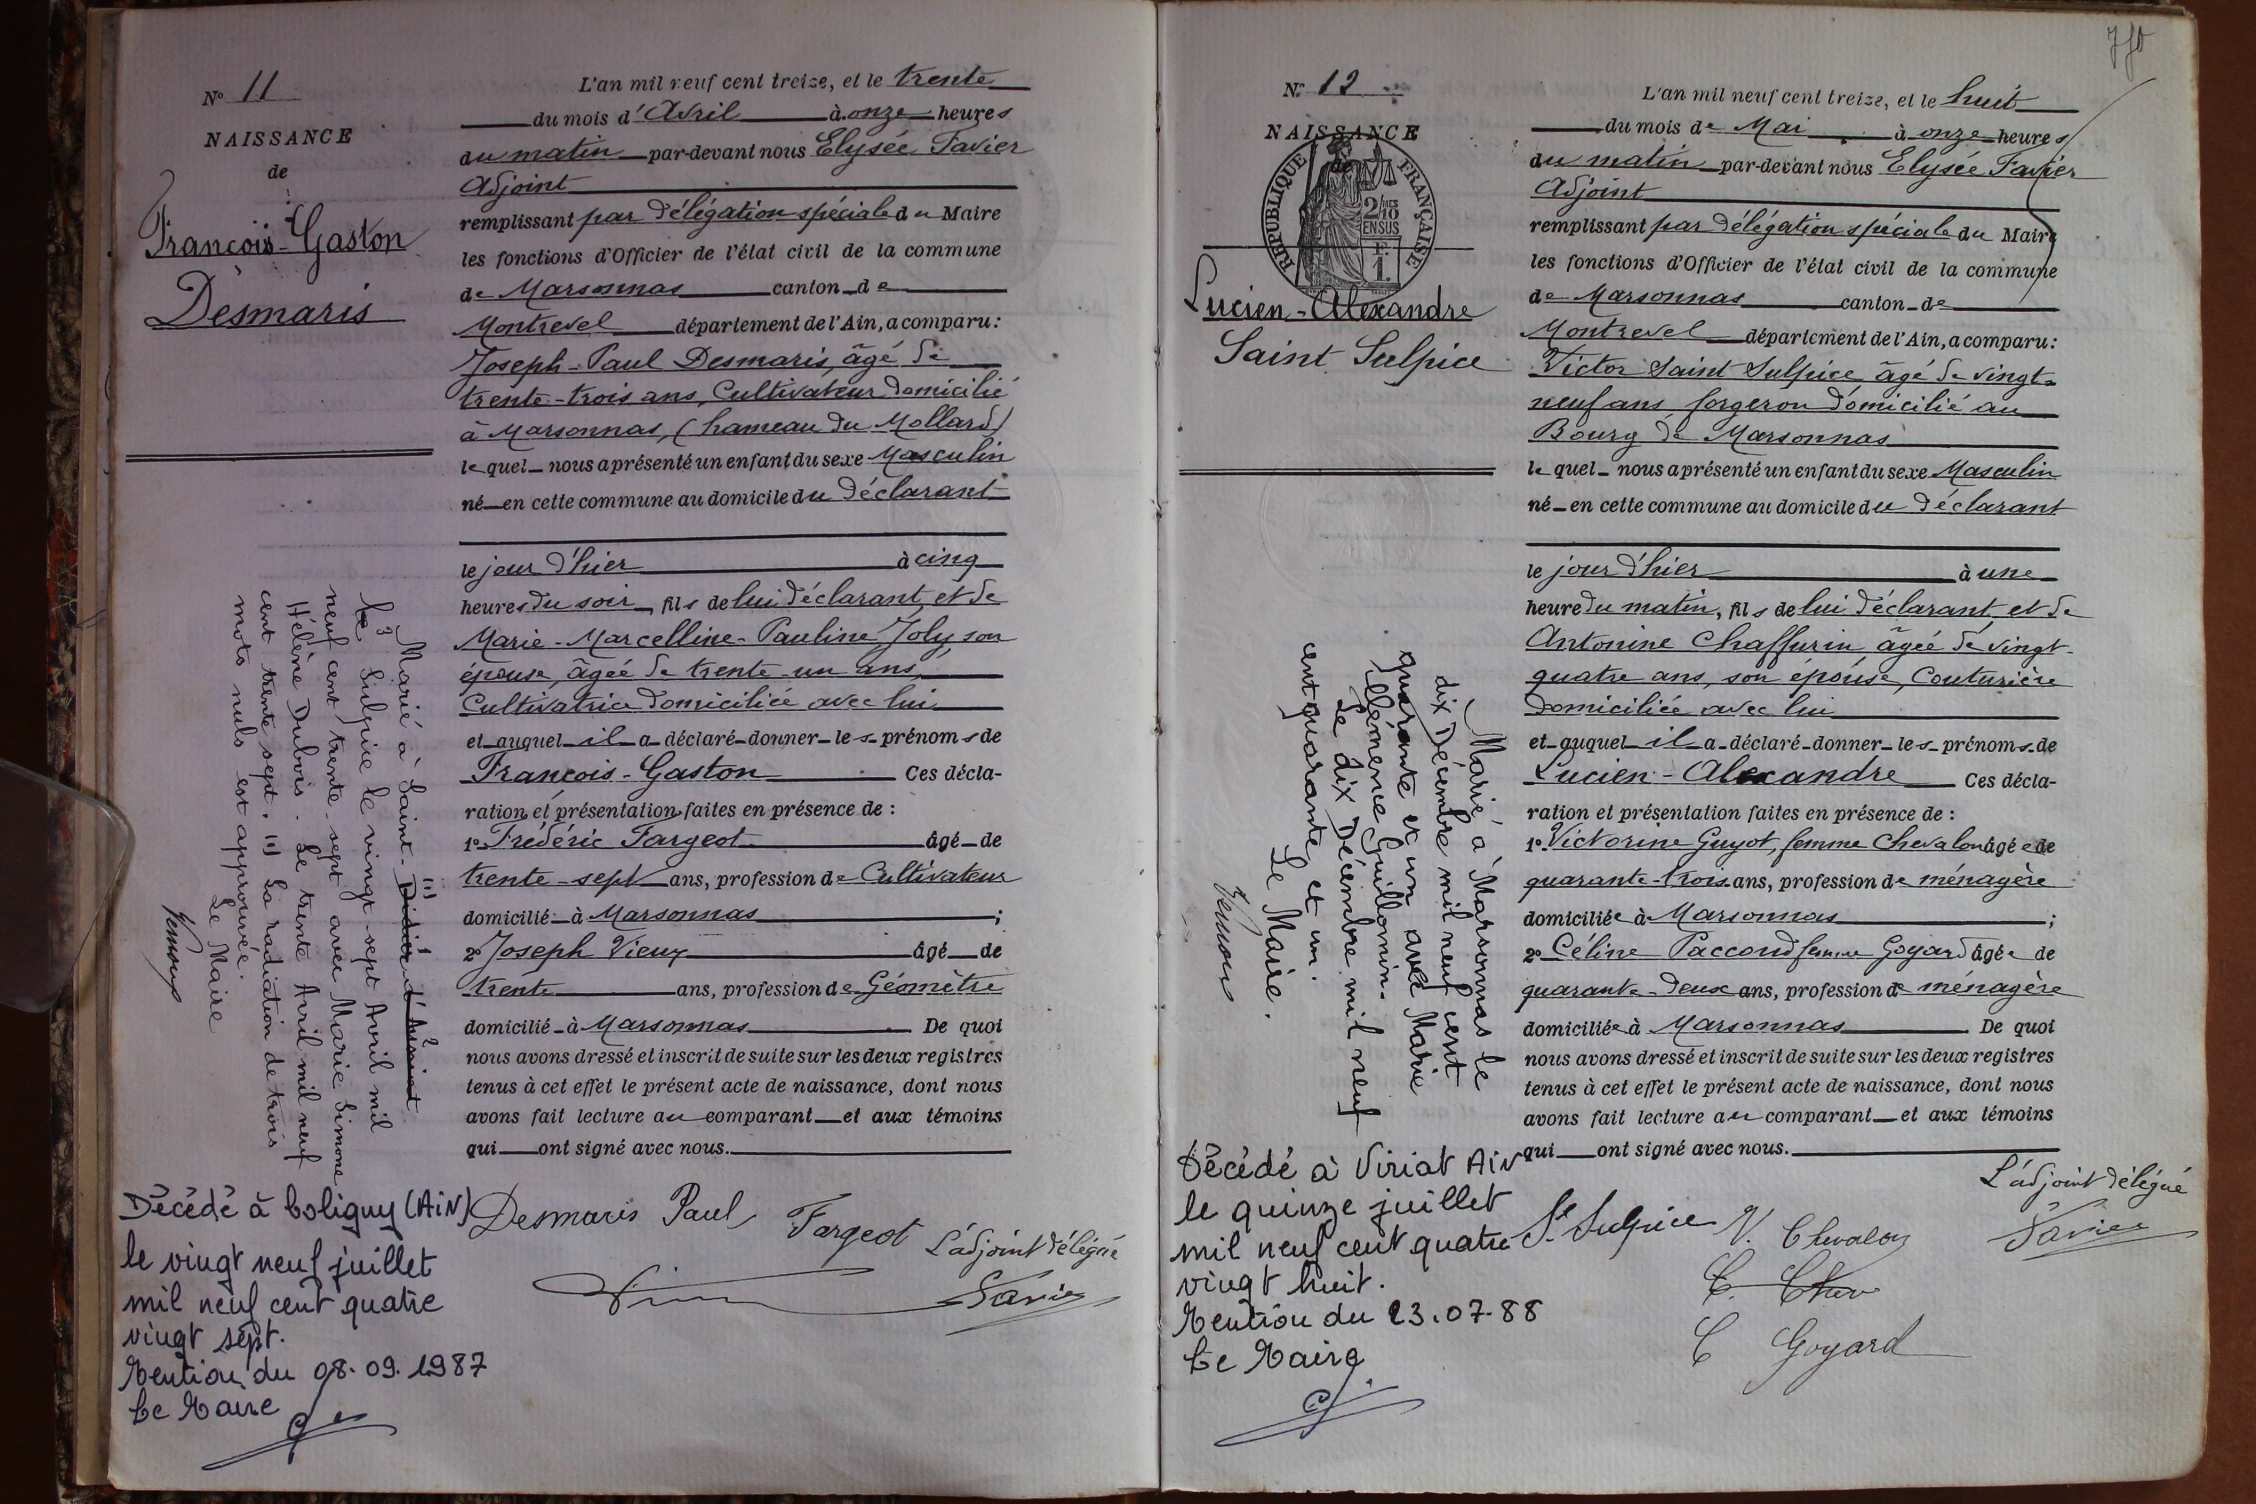 Nº 11
NAISSANCE
de
François-Gaston
Desmaris
L'an mil neuf cent treize, et le trente
du mois d'Avril à onze heures
du matin par-devant nous Elysée Favier
Adjoint
remplissant par délégation spéciale du Maire
les fonctions d'Officier de l'état civil de la commune
de Marsonnas canton de
Montrevel département de l'Ain, a comparu:
Joseph-Paul Desmaris, âgé de
trente-trois ans, Cultivateur domicilié
à Marsonnas, (hameau du Mollard)
lequel nous a présenté un enfant du sexe Masculin
né en cette commune au domicile du déclarant
le jour d'hier à cinq
heures du soir, fils de lui déclarant, et de
Marie-Marcelline-Pauline Joly, son
épouse, âgée de trente-un ans,
Cultivatrice domiciliée avec lui
et auquel il a déclaré donner les prénoms de
François-Gaston Ces décla-
ration et présentation faites en présence de :
1º Frédéric Fargeot âgé de
trente-sept ans, profession de Cultivateur
domicilié à Marsonnas ;
2º Joseph Vieux âgé de
trente ans, profession de Géomètre
domicilié à Marsonnas De quoi
nous avons dressé et inscrit de suite sur les deux registres
tenus à cet effet le présent acte de naissance, dont nous
avons fait lecture au comparant et aux témoins
qui ont signé avec nous.
Desmaris Paul Fargeot L'adjoint délégué
Favier
Marié à Saint-(1) Didier d'Aussiat
le Sulpice le vingt-sept Avril mil
neuf cent trente-sept avec Marie Simone
Hélène Dubois. Le trente Avril mil neuf
cent trente sept. (1) La radiation de trois
mots nuls est approuvée.
Le Maire
Décédé à Coligny (AiN)
le vingt neuf juillet
mil neuf cent quatre
vingt sept.
Mention du 08.09.1987
Le Maire
770
Nº 12
NAISSANCE
de
RÉPUBLIQUE FRANÇAISE
2/10 MES
EN SUS
1 F.
Lucien-Alexandre
Saint Sulpice
L'an mil neuf cent treize, et le huit
du mois de Mai à onze heures
du matin par-devant nous Elysée Favier
Adjoint
remplissant par délégation spéciale du Maire
les fonctions d'Officier de l'état civil de la commune
de Marsonnas canton de
Montrevel département de l'Ain, a comparu:
Victor Saint Sulpice, âgé de vingt-
neuf ans forgeron domicilié au
Bourg de Marsonnas
lequel nous a présenté un enfant du sexe Masculin
né en cette commune au domicile du déclarant
le jour d'hier à une
heure du matin, fils de lui déclarant, et de
Antonine Chaffurin âgée de vingt-
quatre ans, son épouse, Couturière
domiciliée avec lui
et auquel il a déclaré donner les prénoms de
Lucien-Alexandre Ces décla-
ration et présentation faites en présence de :
1º Victorine Guyot, femme Chevalon âgée de
quarante-trois ans, profession de ménagère
domiciliée à Marsonnas ;
2º Céline Paccoud femme Goyard âgée de
quarante-deux ans, profession de ménagère
domiciliée à Marsonnas De quoi
nous avons dressé et inscrit de suite sur les deux registres
tenus à cet effet le présent acte de naissance, dont nous
avons fait lecture au comparant et aux témoins
qui ont signé avec nous.
L'adjoint délégué
St Sulpice V. Chevalon Favier
C. Chev
C Goyard
Marié à Marsonnas le
dix Décembre mil neuf cent
quarante et un avec Marie
Clémence Guillomin.
Le dix Décembre mil neuf
cent quarante et un.
Le Maire.
Décédé à Viriat AiN
le quinze juillet
mil neuf cent quatre
vingt huit.
Mention du 23.07.88
Le Maire